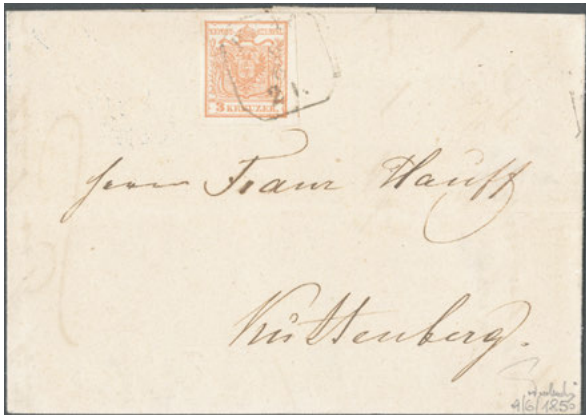 3 KREUZER.
Herrn Franz Hauff
Kuttenberg.
9/6/1850